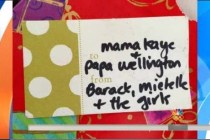 mama kaye
to +
papa wellington
from
Barack, michelle
+ the girls